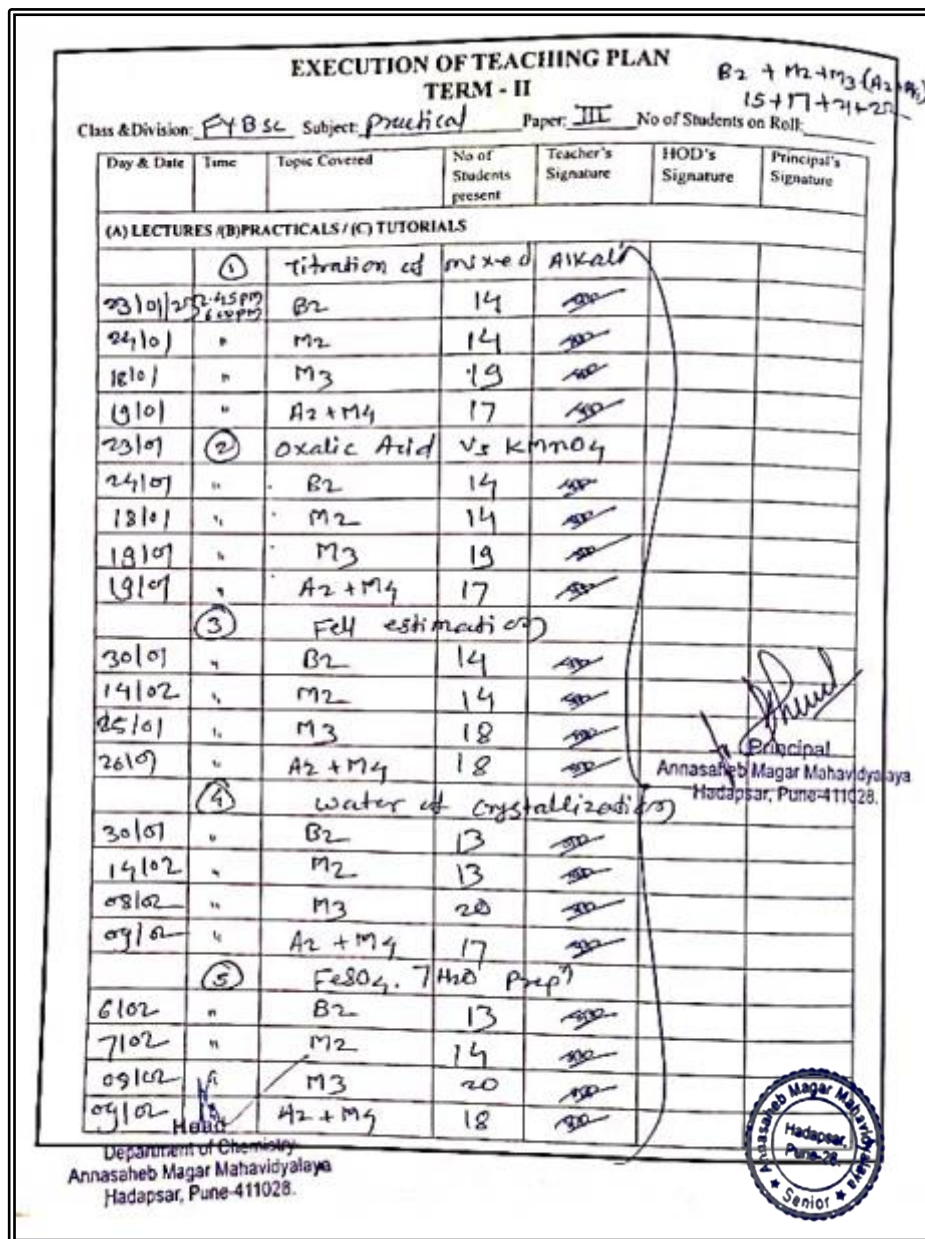 EXECUTION OF TEACHING PLAN
TERM - II
B2 + M2 + M3 (A2+
15+17+21+25
Class & Division: FYBSc Subject: Practical Paper: III No of Students on Roll:
Day & Date Time Topic Covered No of Students present Teacher's Signature HOD's Signature Principal's Signature
(A) LECTURES /(B)PRACTICALS / (C) TUTORIALS
① Titration of mixed Alkali
23/01/25 2.45pm B2 14
24/01 " M2 14
18/01 " M3 19
19/01 " A2+M4 17
23/01 ② Oxalic Acid Vs KMnO4
24/01 " B2 14
18/01 " M2 14
19/01 " M3 19
19/01 " A2+M4 17
③ FeII estimation
30/01 " B2 14
14/02 " M2 14
25/01 " M3 18
26/01 " A2+M4 18
Principal
Annasaheb Magar Mahavidyalaya
Hadapsar, Pune-411028.
④ water of crystallization
30/01 " B2 13
14/02 " M2 13
08/02 " M3 20
09/02 " A2+M4 17
⑤ FeSO4. 7H2O Prepn
6/02 " B2 13
7/02 " M2 14
09/02 M3 20
09/02 A2+M4 18
Head
Department of Chemistry
Annasaheb Magar Mahavidyalaya
Hadapsar, Pune-411028.
Annasaheb Magar Mahavidyalaya
Hadapsar,
Pune-28.
Senior